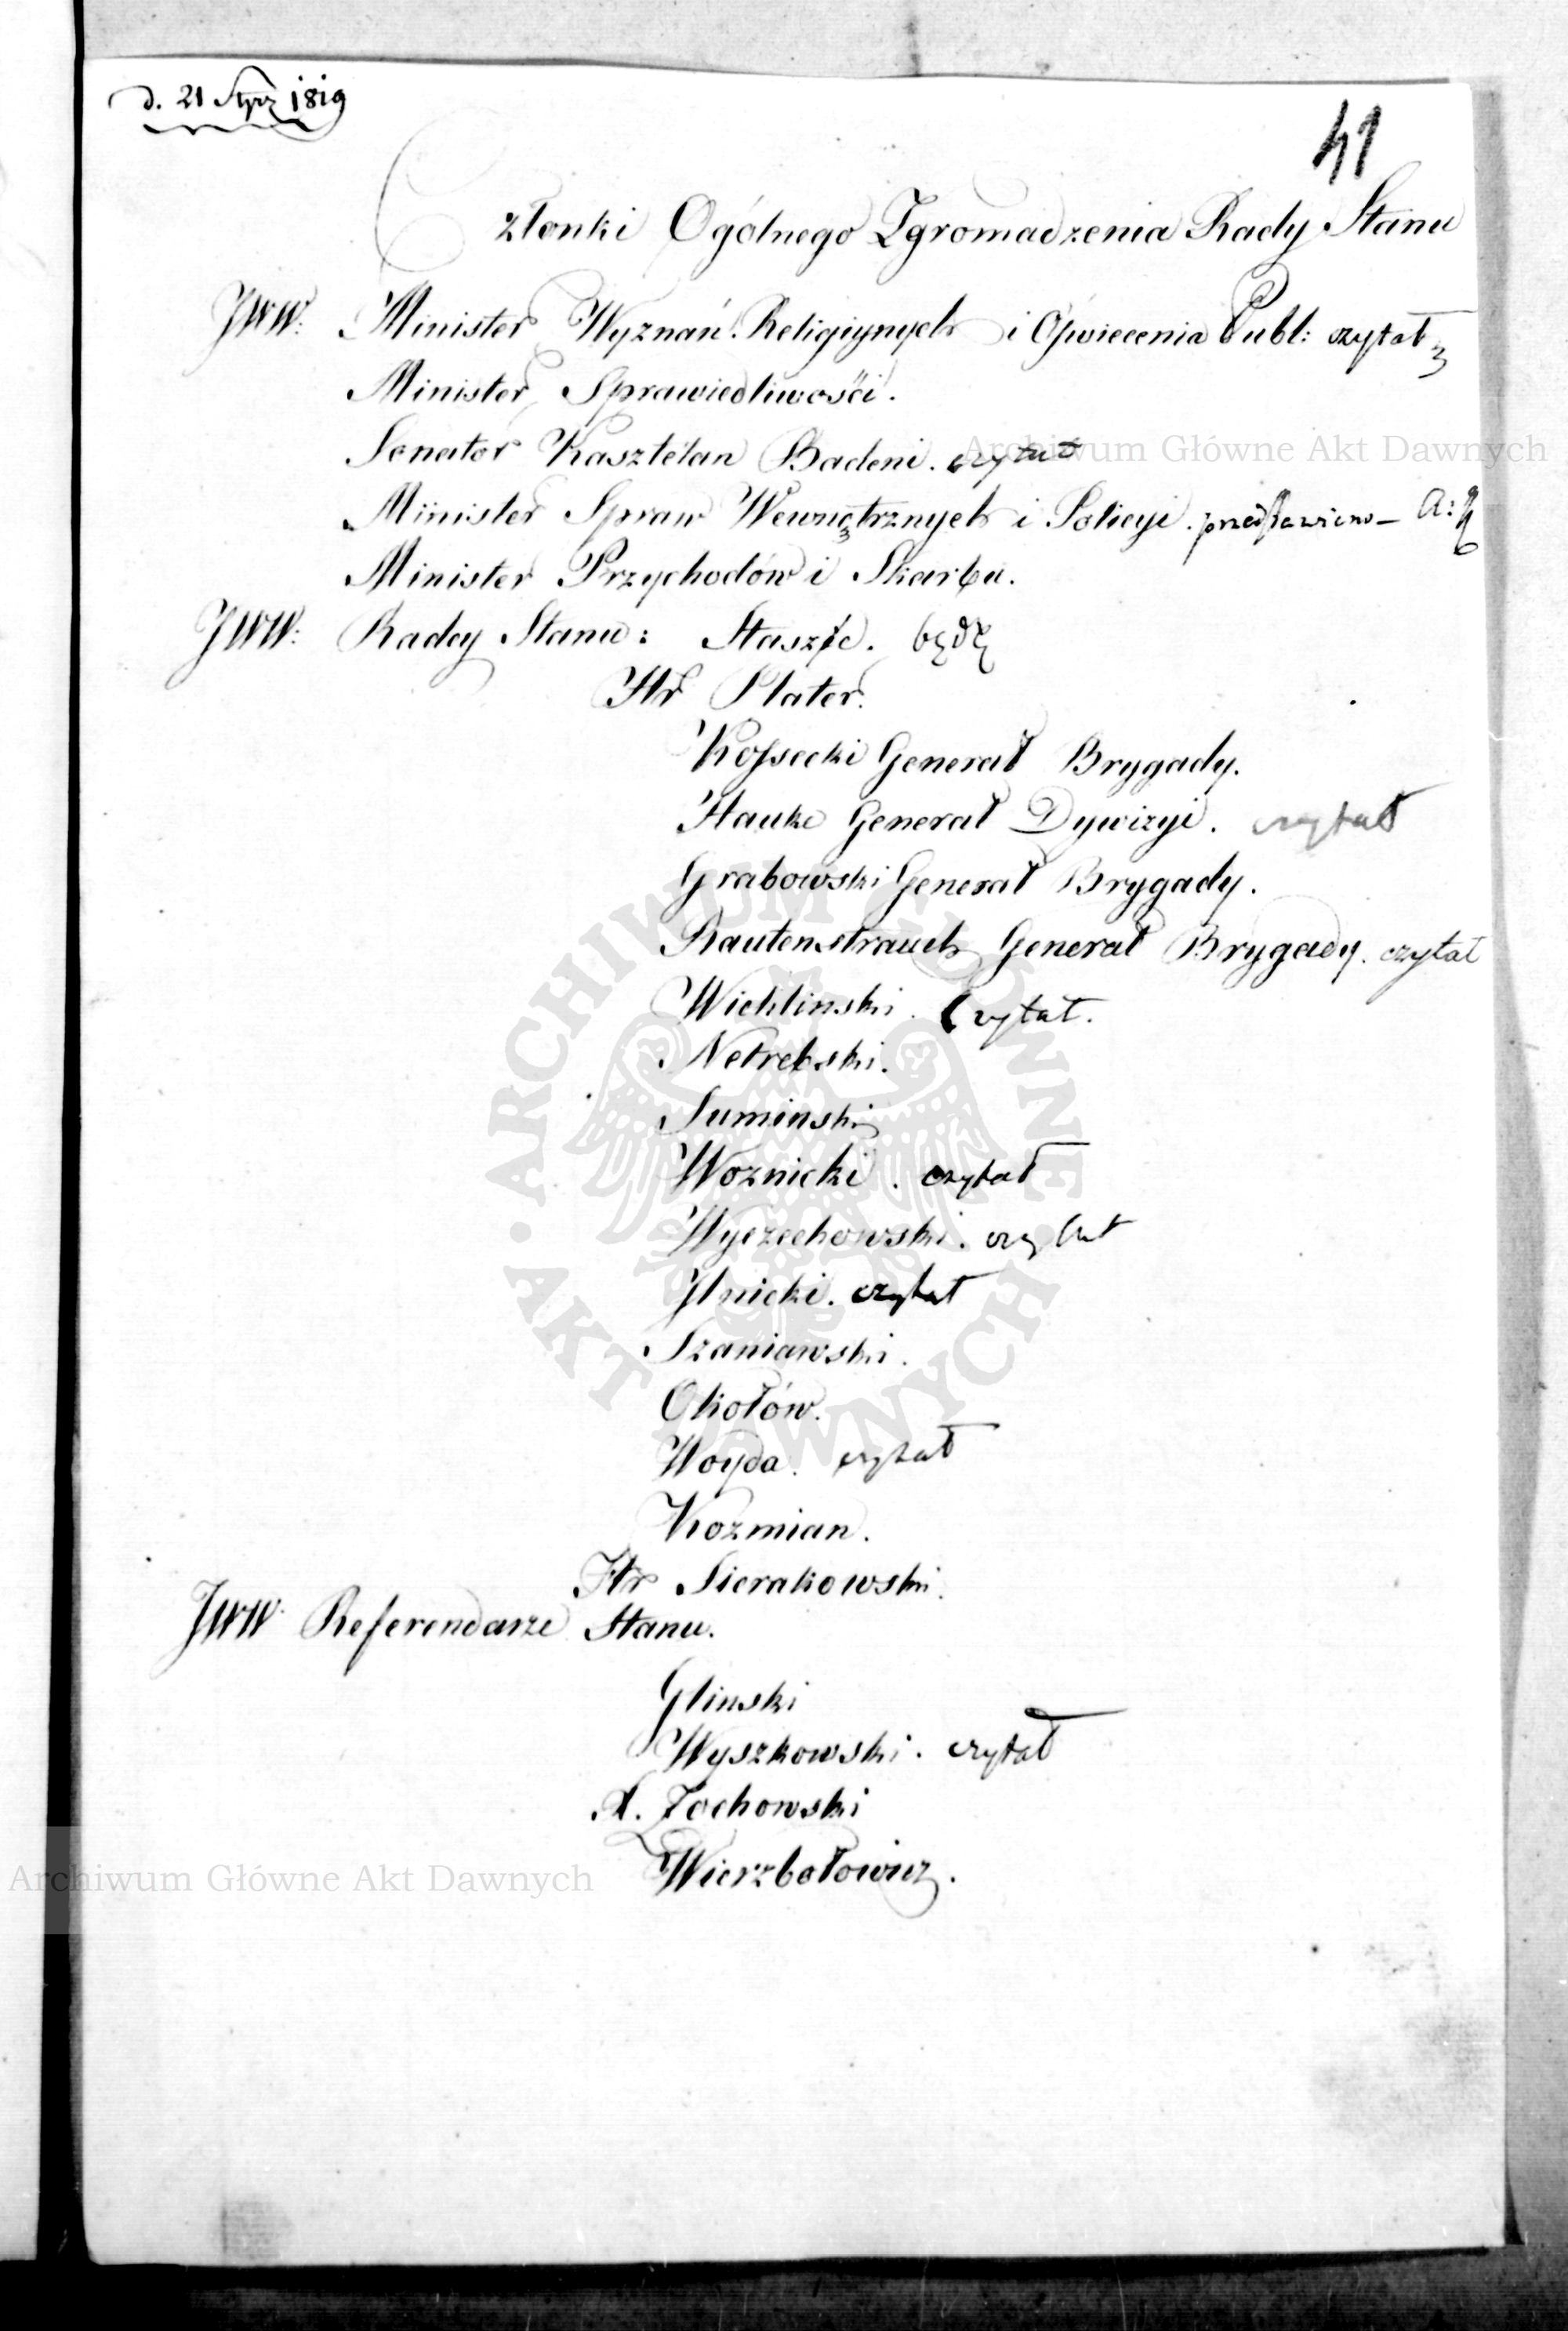 d. 21 Stycz 1819
41
Członki Ogólnego Zgromadzenia Rady Stanu
JWW: Minister Wyznań Religiynych i Oświecenia Publ: czytał
Minister Sprawiedliwości.
Senator Kasztelan Badeni. czytał
Archiwum Główne Akt Dawnych
Minister Spraw Wewnętrznych i Policyi. przedstawiono –
Minister Przychodów i Skarbu.
JWW: Radcy Stanu: Staszic. będę
Hr Plater.
Kossecki Generał Brygady.
Hauke Generał Dywizyi. czytał
Grabowski Generał Brygady.
Rautenstrauch Generał Brygady. czytał
Wichlinski. Czytał.
Netrebski.
Suminski
Woznicki. czytał
Wyczechowski. czytał
Ilnicki. czytał
Szaniawski.
Okołów.
Woyda. czytał
Kozmian.
Hr Sierakowski.
JWW Referendarze Stanu.
Glinski
Wyszkowski. czytał
X. Zochowski
Wierzbołowicz.
Archiwum Główne Akt Dawnych
ARCHIWUM GŁÓWNE AKT DAWNYCH